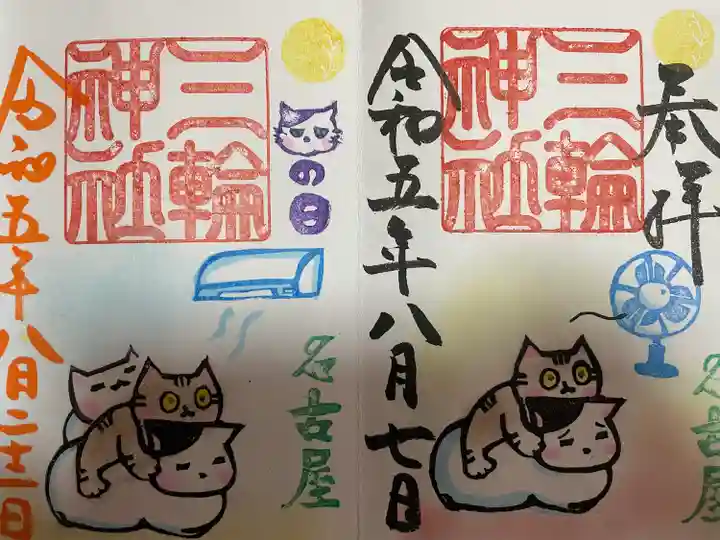 奉拝
三輪
神社
令和五年八月七日
名古屋
の日
三輪
神社
令和五年八月二十二日
名古屋